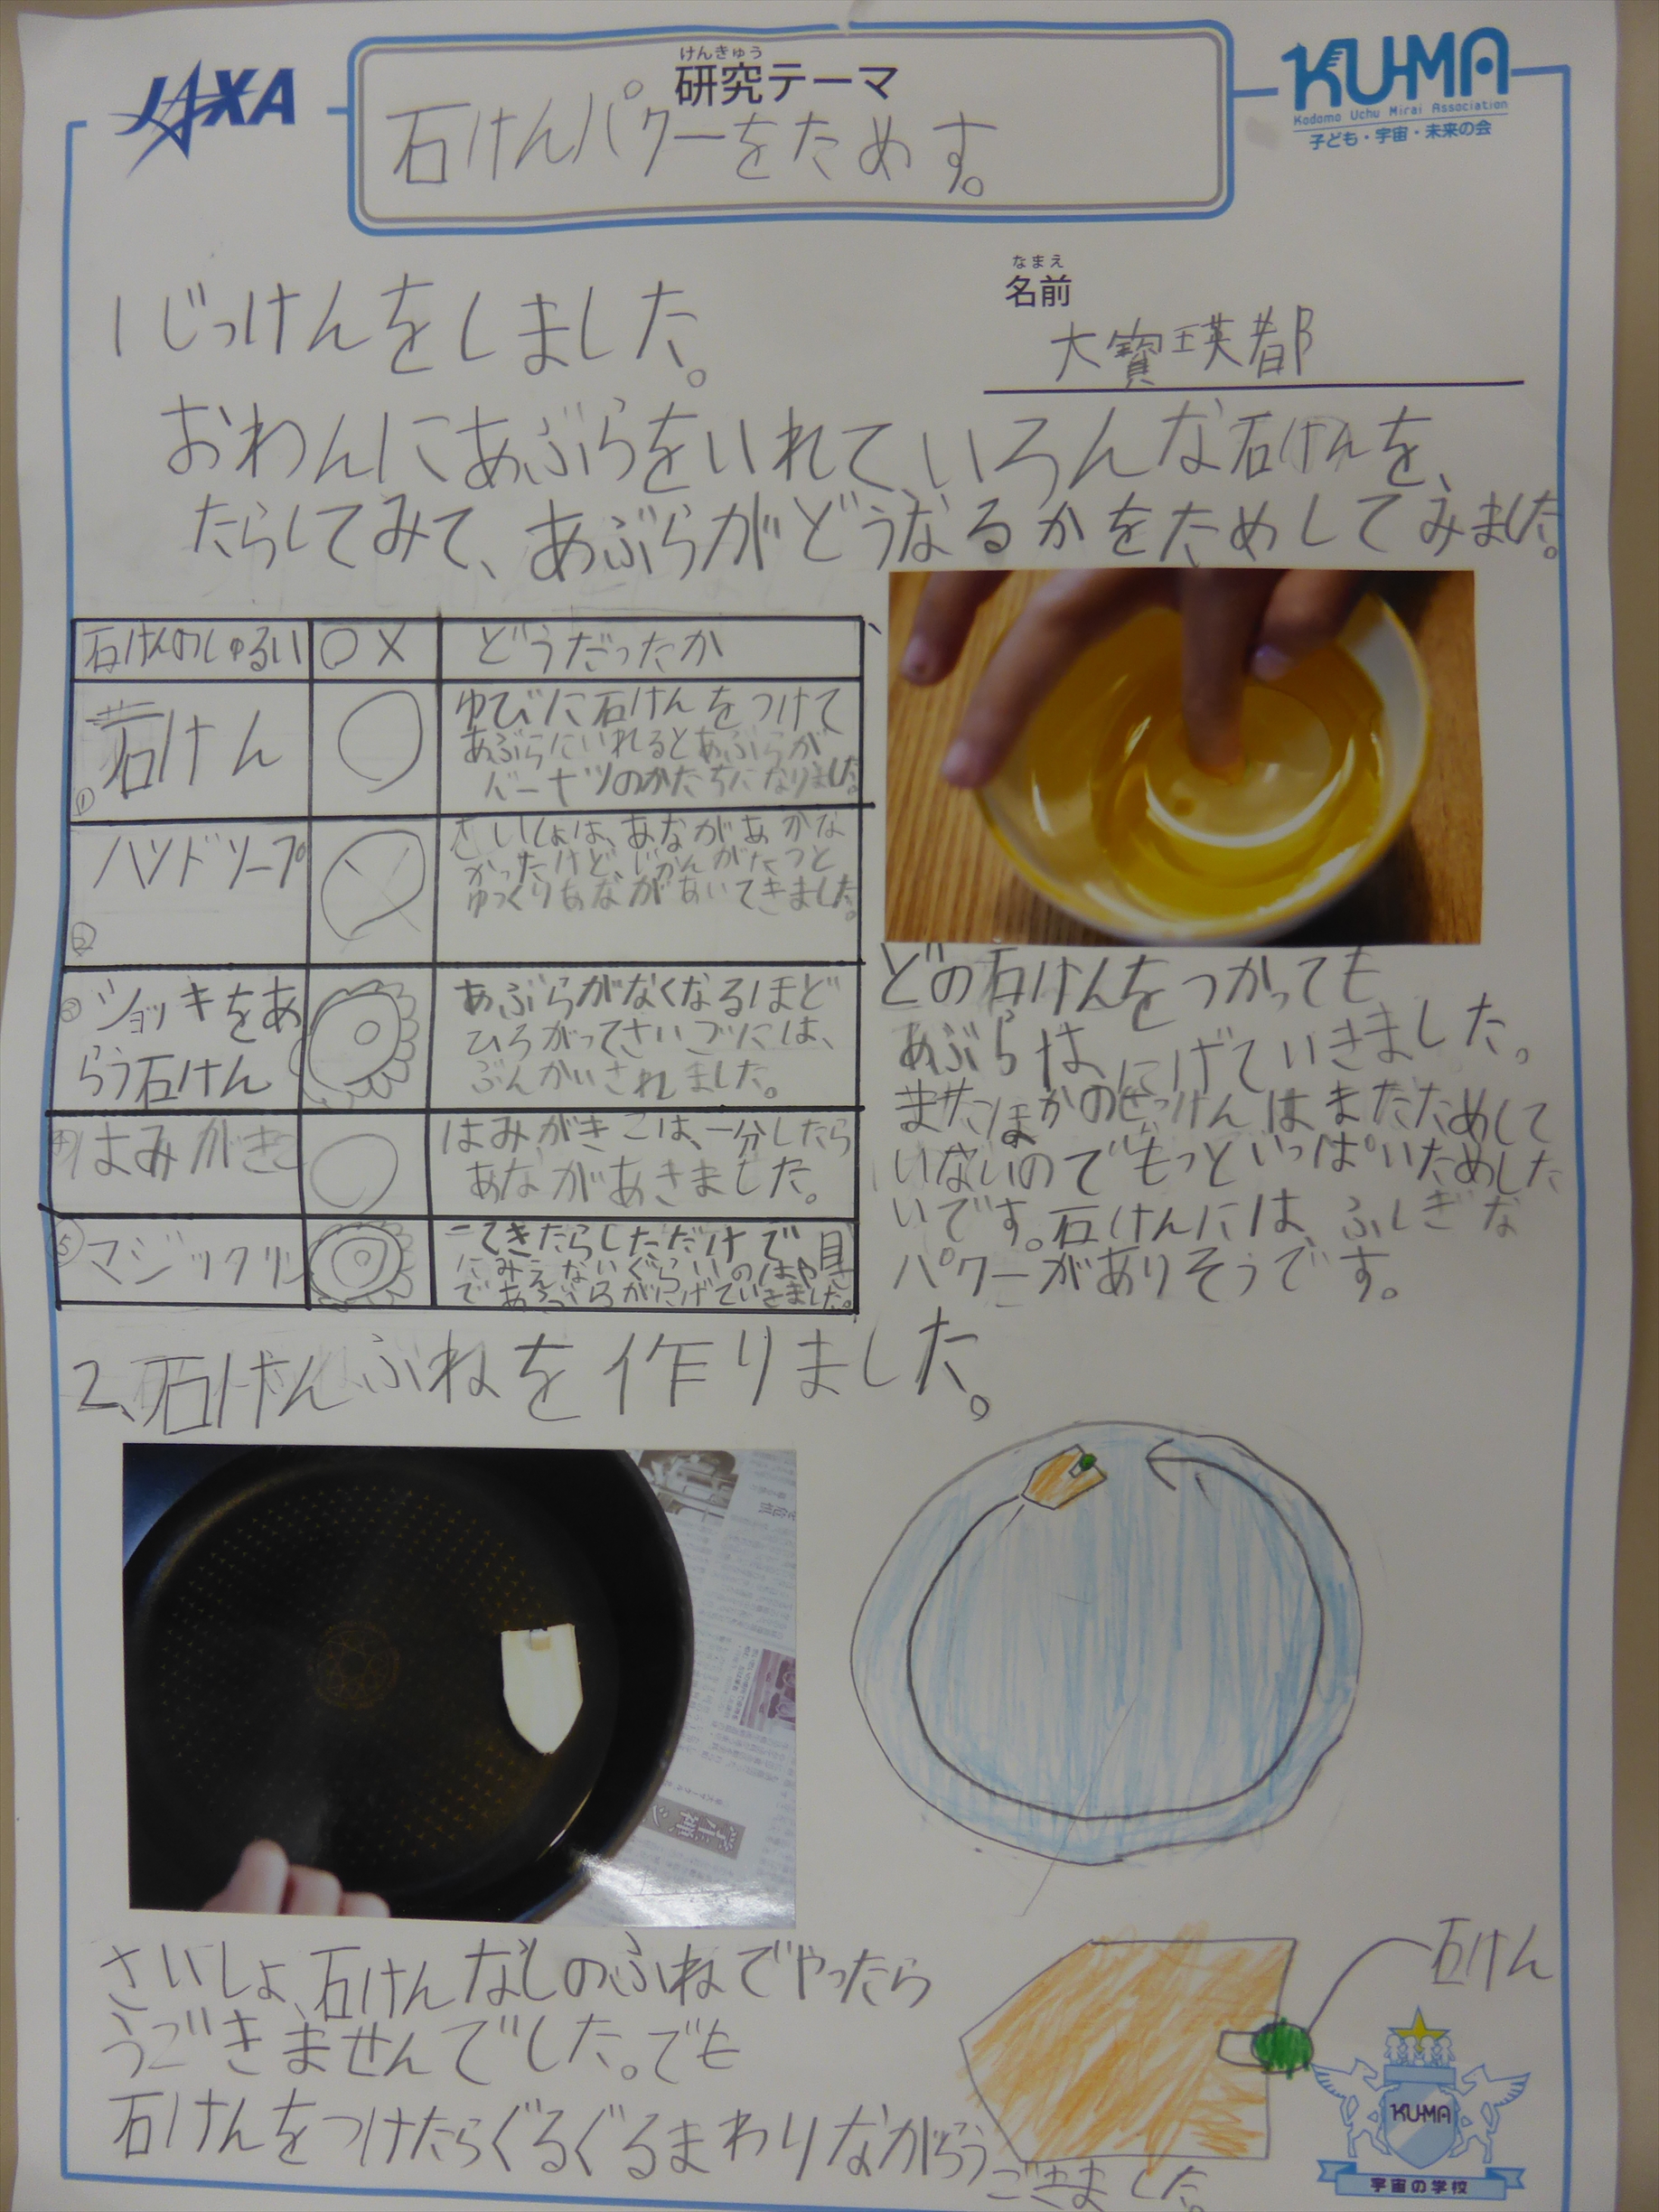 JAXA
けんきゅう
研究テーマ
石けんパワーをためす。
KU-MA
Kodomo Uchu Mirai Association
子ども・宇宙・未来の会
なまえ
名前
大寳瑛都
1じっけんをしました。
おわんにあぶらをいれて、いろんな石けんを、
たらしてみて、あぶらがどうなるかをためしてみました。
石けんのしゅるい ○× どうだったか
① 石けん ○ ゆびに石けんをつけて
あぶらにいれるとあぶらが
ドーナツのかたちになりました。
② ハンドソープ さいしょは、あながあかな
かったけど、じかんがたつと
ゆっくりあながあいてきました。
③ ショッキをあ
らう石けん
あぶらがなくなるほど
ひろがってさいごには、
ぶんかいされました。
④ はみがきこ ○ はみがきこは、一分したら
あながあきました。
⑤ マジックリン
一てきたらしただけで目
にみえないぐらいのはやさ
であぶらがにげていきました。
どの石けんをつかっても
あぶらは、にげていきました。
まだほかのせっけんはまだためして
いないのでもっといっぱいためした
いです。石けんには、ふしぎな
パワーがありそうです。
2、石けんふねを作りました。
さいしょ、石けんなしのふねでやったら
うごきませんでした。でも
石けんをつけたらぐるぐるまわりながらう
ごきました。
石けん
KU-MA
宇宙の学校